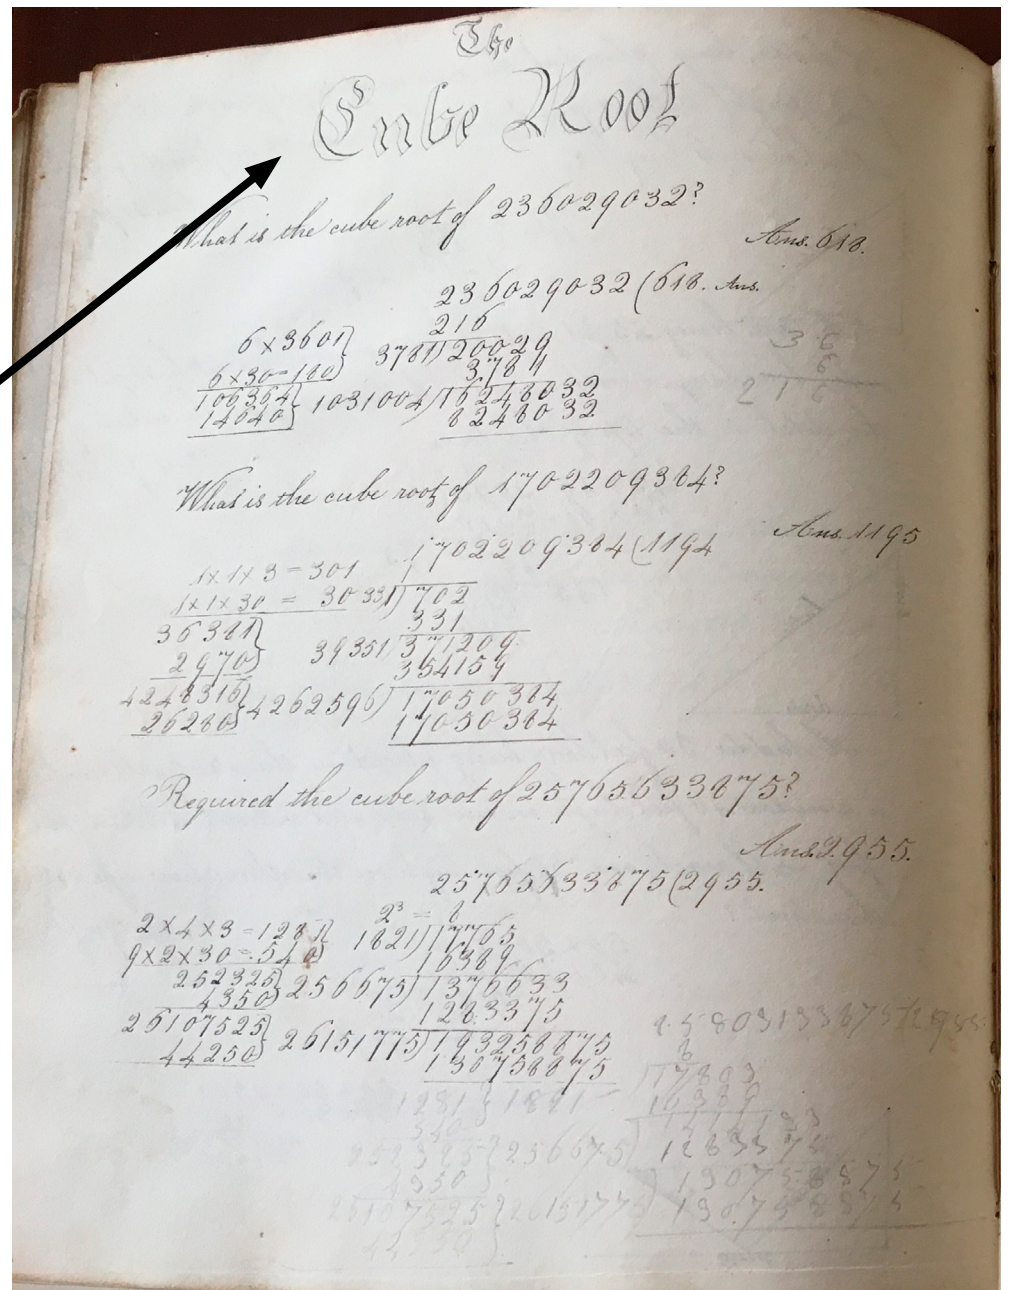 The
Cube Root
What is the cube root of 236029032?
Ans. 618.
236029032(618. Ans.
216
6×3601}
3781)20029
3781
6×30=180}
106364}
1031004)16248032
14640}
8248032
36
6
216
What is the cube root of 1702209384?
Ans. 1195
1702209384(1194
1×1×3=301
1×1×30 = 30
331)702
331
36381}
2970}
39351)371209
354159
4248316}
26280}
4262596)17050384
17050384
Required the cube root of 25765633875?
Ans. 2955.
25765633875(2955.
2³ = 8
2×4×3=1281}
9×2×30=540}
1821)17765
16389
252325}
4350}
256675)1376633
1283375
26107525}
44250}
26151775)193258875
130758875
25803133875(2955
8
17803
16389
1281}1821
540
252325}256675)
1283375
4350}
130758875
26107525}26151775)130758875
44250}